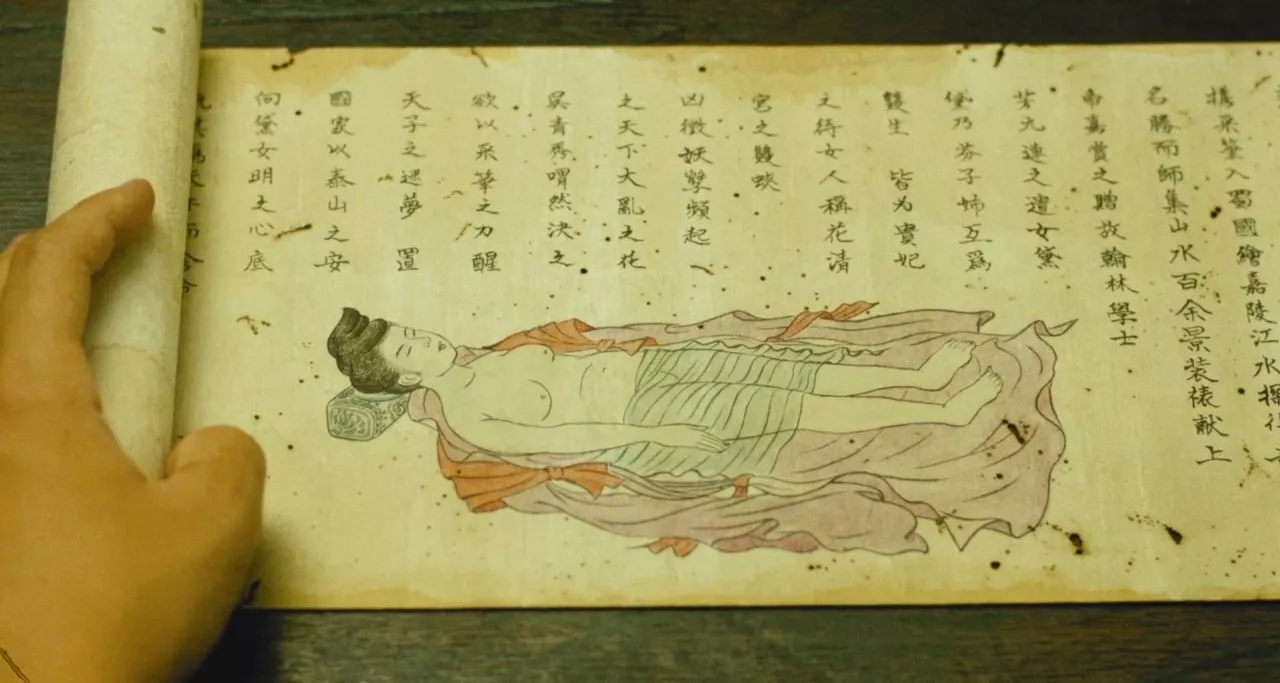 携采筆入蜀國繪嘉陵江水探
名勝而師集山水百余景装裱献上
帝嘉賞之贈故翰林學士
芳九連之遺女黛
黛乃芬子姉互爲
雙生 皆为貴妃
之侍女人稱花清
宮之雙蛺
凶徴妖孼頻起
之天下大亂之花
吳青秀喟然決之
欲以采筆之力醒
天子之迷夢 置
國家以泰山之安
向黛女明之心底